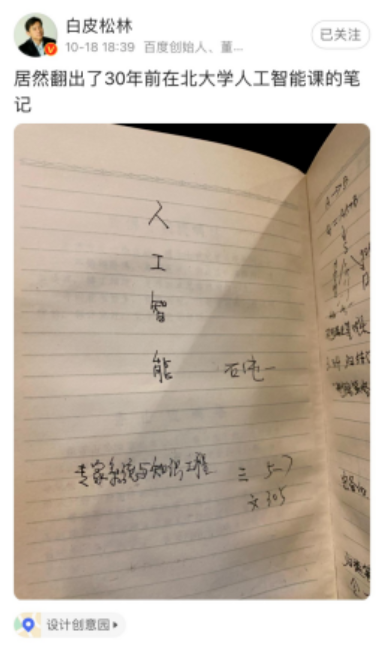 白皮松林
10-18 18:39 百度创始人、董...
已关注
居然翻出了30年前在北大学人工智能课的笔
记
人
工
智
能 石纯一
专家系统与知识工程 三 5—7
文305
设计创意园